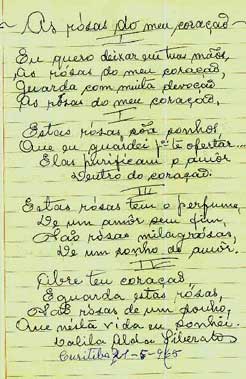 As rósas do meu coração
I
Eu quero deixar em tuas mãos,
As rósas do meu coração,
Guarda com muita devoção
As rósas do meu coração.
II
Estas rósas, são sonhos,
Que eu guardei p'ra te ofertar...
Elas purificam o amôr
Dentro do coração.
III
Estas rósas tem o perfume,
De um amôr sem fim,
São rósas milagrósas,
De um sonho de amôr.
IV
Abre teu coração,
E guarda estas rósas,
São rósas de um sonho,
Que nésta vida eu sonhei.
Dalila Liberato
Curitiba, 21-5-965